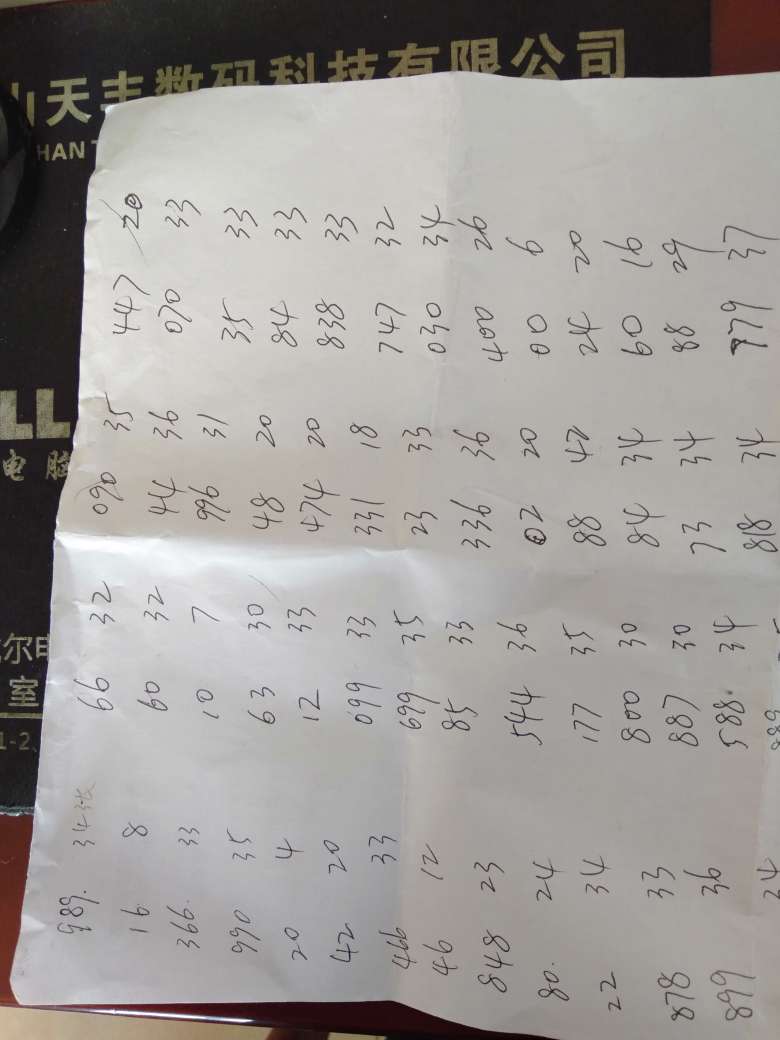 山天丰数码科技有限公司
HAN T
LL
电脑
尔电
室
1-2、
989. 34张 66 32 090 35 447 20
16. 8 60 32 44 36 070 33
366. 33 10 7 996 31 35 33
990 35 63 30 48 20 84 33
20 4 12 33 474 20 838 33
42 20 099 33 331 18 747 32
466 33 699 35 23 33 030 34
46 12 85 33 336 36 400 26
848 23 544 36 02 20 00 6
80. 24 177 35 88 42 24 20
22 34 800 30 84 34 60 16
878 33 887 30 73 34 88 29
899 36 588. 34 818 34 779 37
34